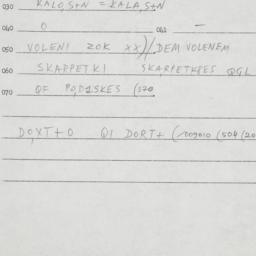 030 KALO,S+N = KALA,S+N
040 O 041 —
050 VOLENI ZOK XX)/DEM VOLENEM
060 SKARPETKI SKARPETKSES QGL
070 QF PO,D1SKES (070
DO,XT+O Q1 DORT+ (/009010 (504 (20